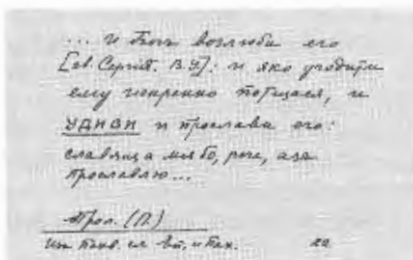 ... и Богъ возлюби его
[св. Сергія. В.У]: и яко угодити
ему искренно потщася, и
УДИВИ и прослави его:
славящая мя бо, рече, азъ
прославлю...
Прол. (П.)
22